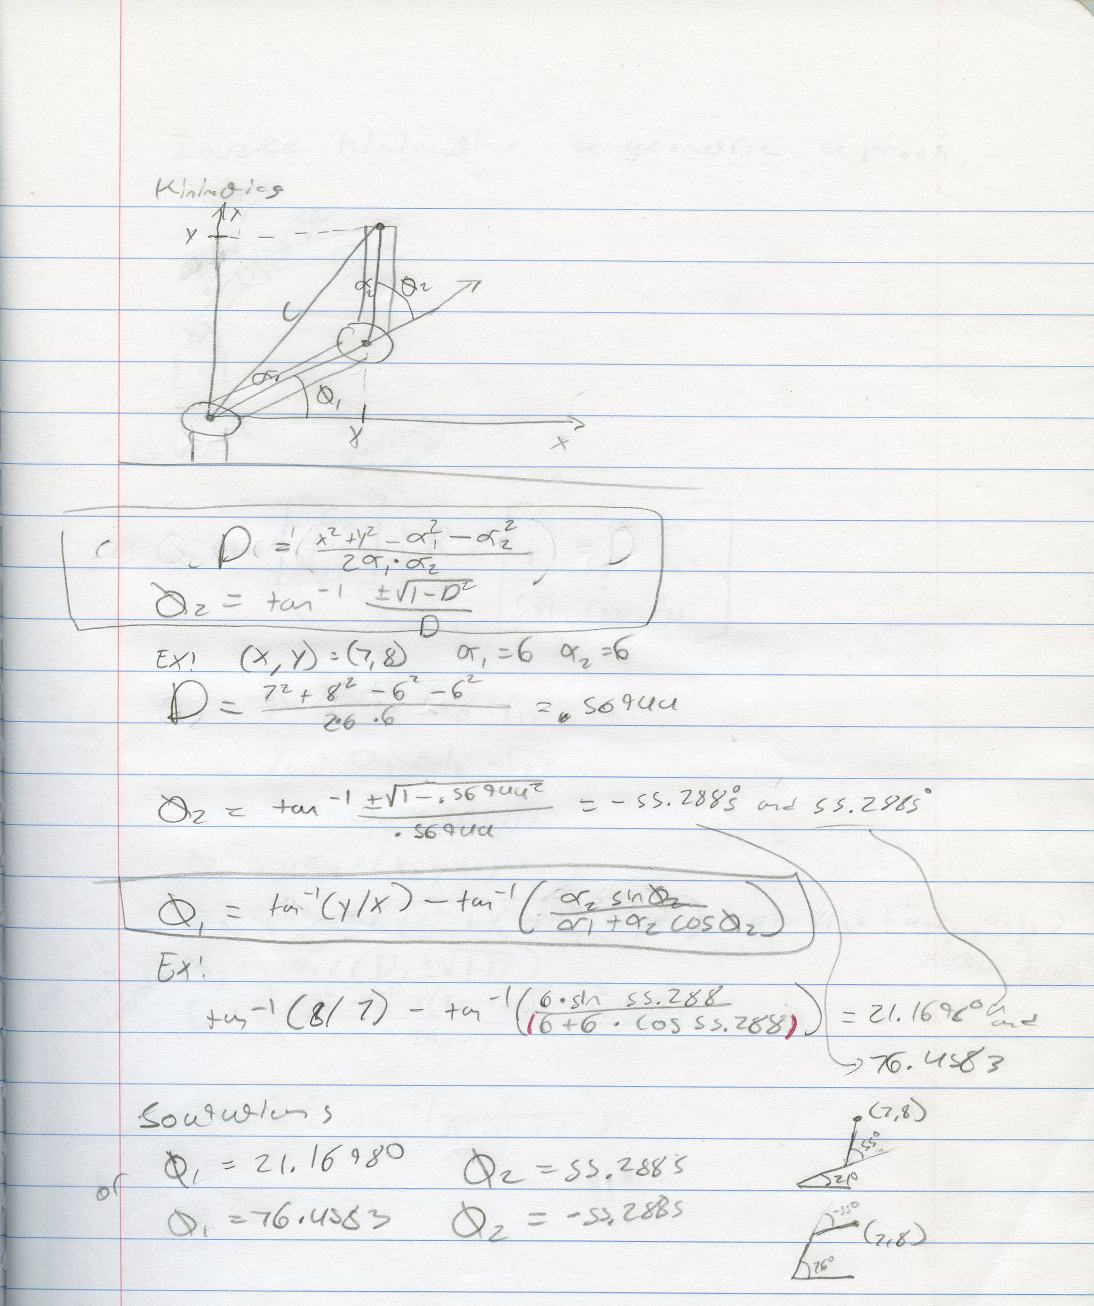 Kinimatics
x
Y
α₂ θ₂
L
α₁ θ₁
x
D = (x² + y² - α₁² - α₂²) / (2α₁·α₂)
θ₂ = tan⁻¹ (±√(1-D²)) / D
Ex: (x, y) = (7,8) α₁ = 6 α₂ = 6
D = (7² + 8² - 6² - 6²) / (2·6·6) = .56944
θ₂ = tan⁻¹ (±√(1-.56944²)) / .56944 = -55.2885° and 55.2885°
θ₁ = tan⁻¹(y/x) - tan⁻¹((α₂ sin θ₂) / (α₁ + α₂ cos θ₂))
Ex:
tan⁻¹(8/7) - tan⁻¹((6·sin 55.288) / (6+6·cos 55.288)) = 21.1698° and
76.4583
Soututions
θ₁ = 21.16980 θ₂ = 55.2885
or
θ₁ = 76.4583 θ₂ = -55.2885
(7,8)
55°
21°
-55°
(7,8)
76°